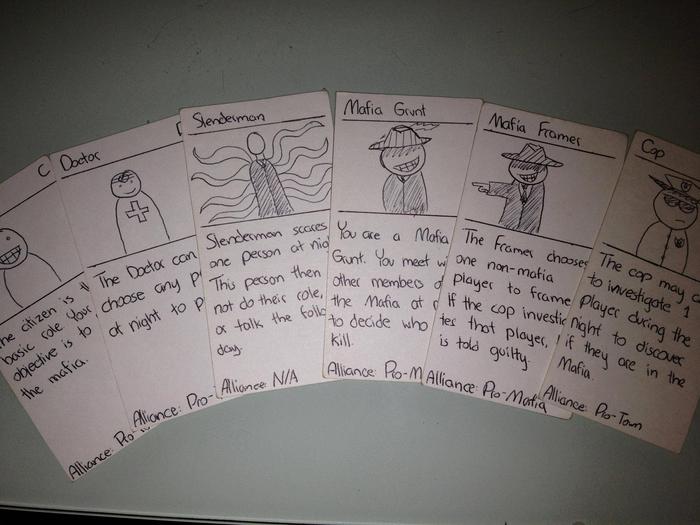 C
he citizen is
basic role. Your
objective is to
the mafia.
Alliance: Pro-
Doctor
D
The Doctor can
choose any p
at night to p
Alliance: Pro-
Slenderman
Slenderman scares
one person at nig
This person then
not do their role,
or talk the follo
day.
Alliance: N/A
Mafia Grunt
You are a Mafia
Grunt. You meet w
other members o
the Mafia at
to decide who
kill.
Alliance: Pro-M
Mafia Framer
The Framer chooses
one non-mafia
player to frame
If the cop investic
tes that player,
is told guilty.
Alliance: Pro-Mafia
Cop
The cop may
to investigate 1
Player during the
night to discover
if they are in the
Mafia.
Alliance: Pro-Town